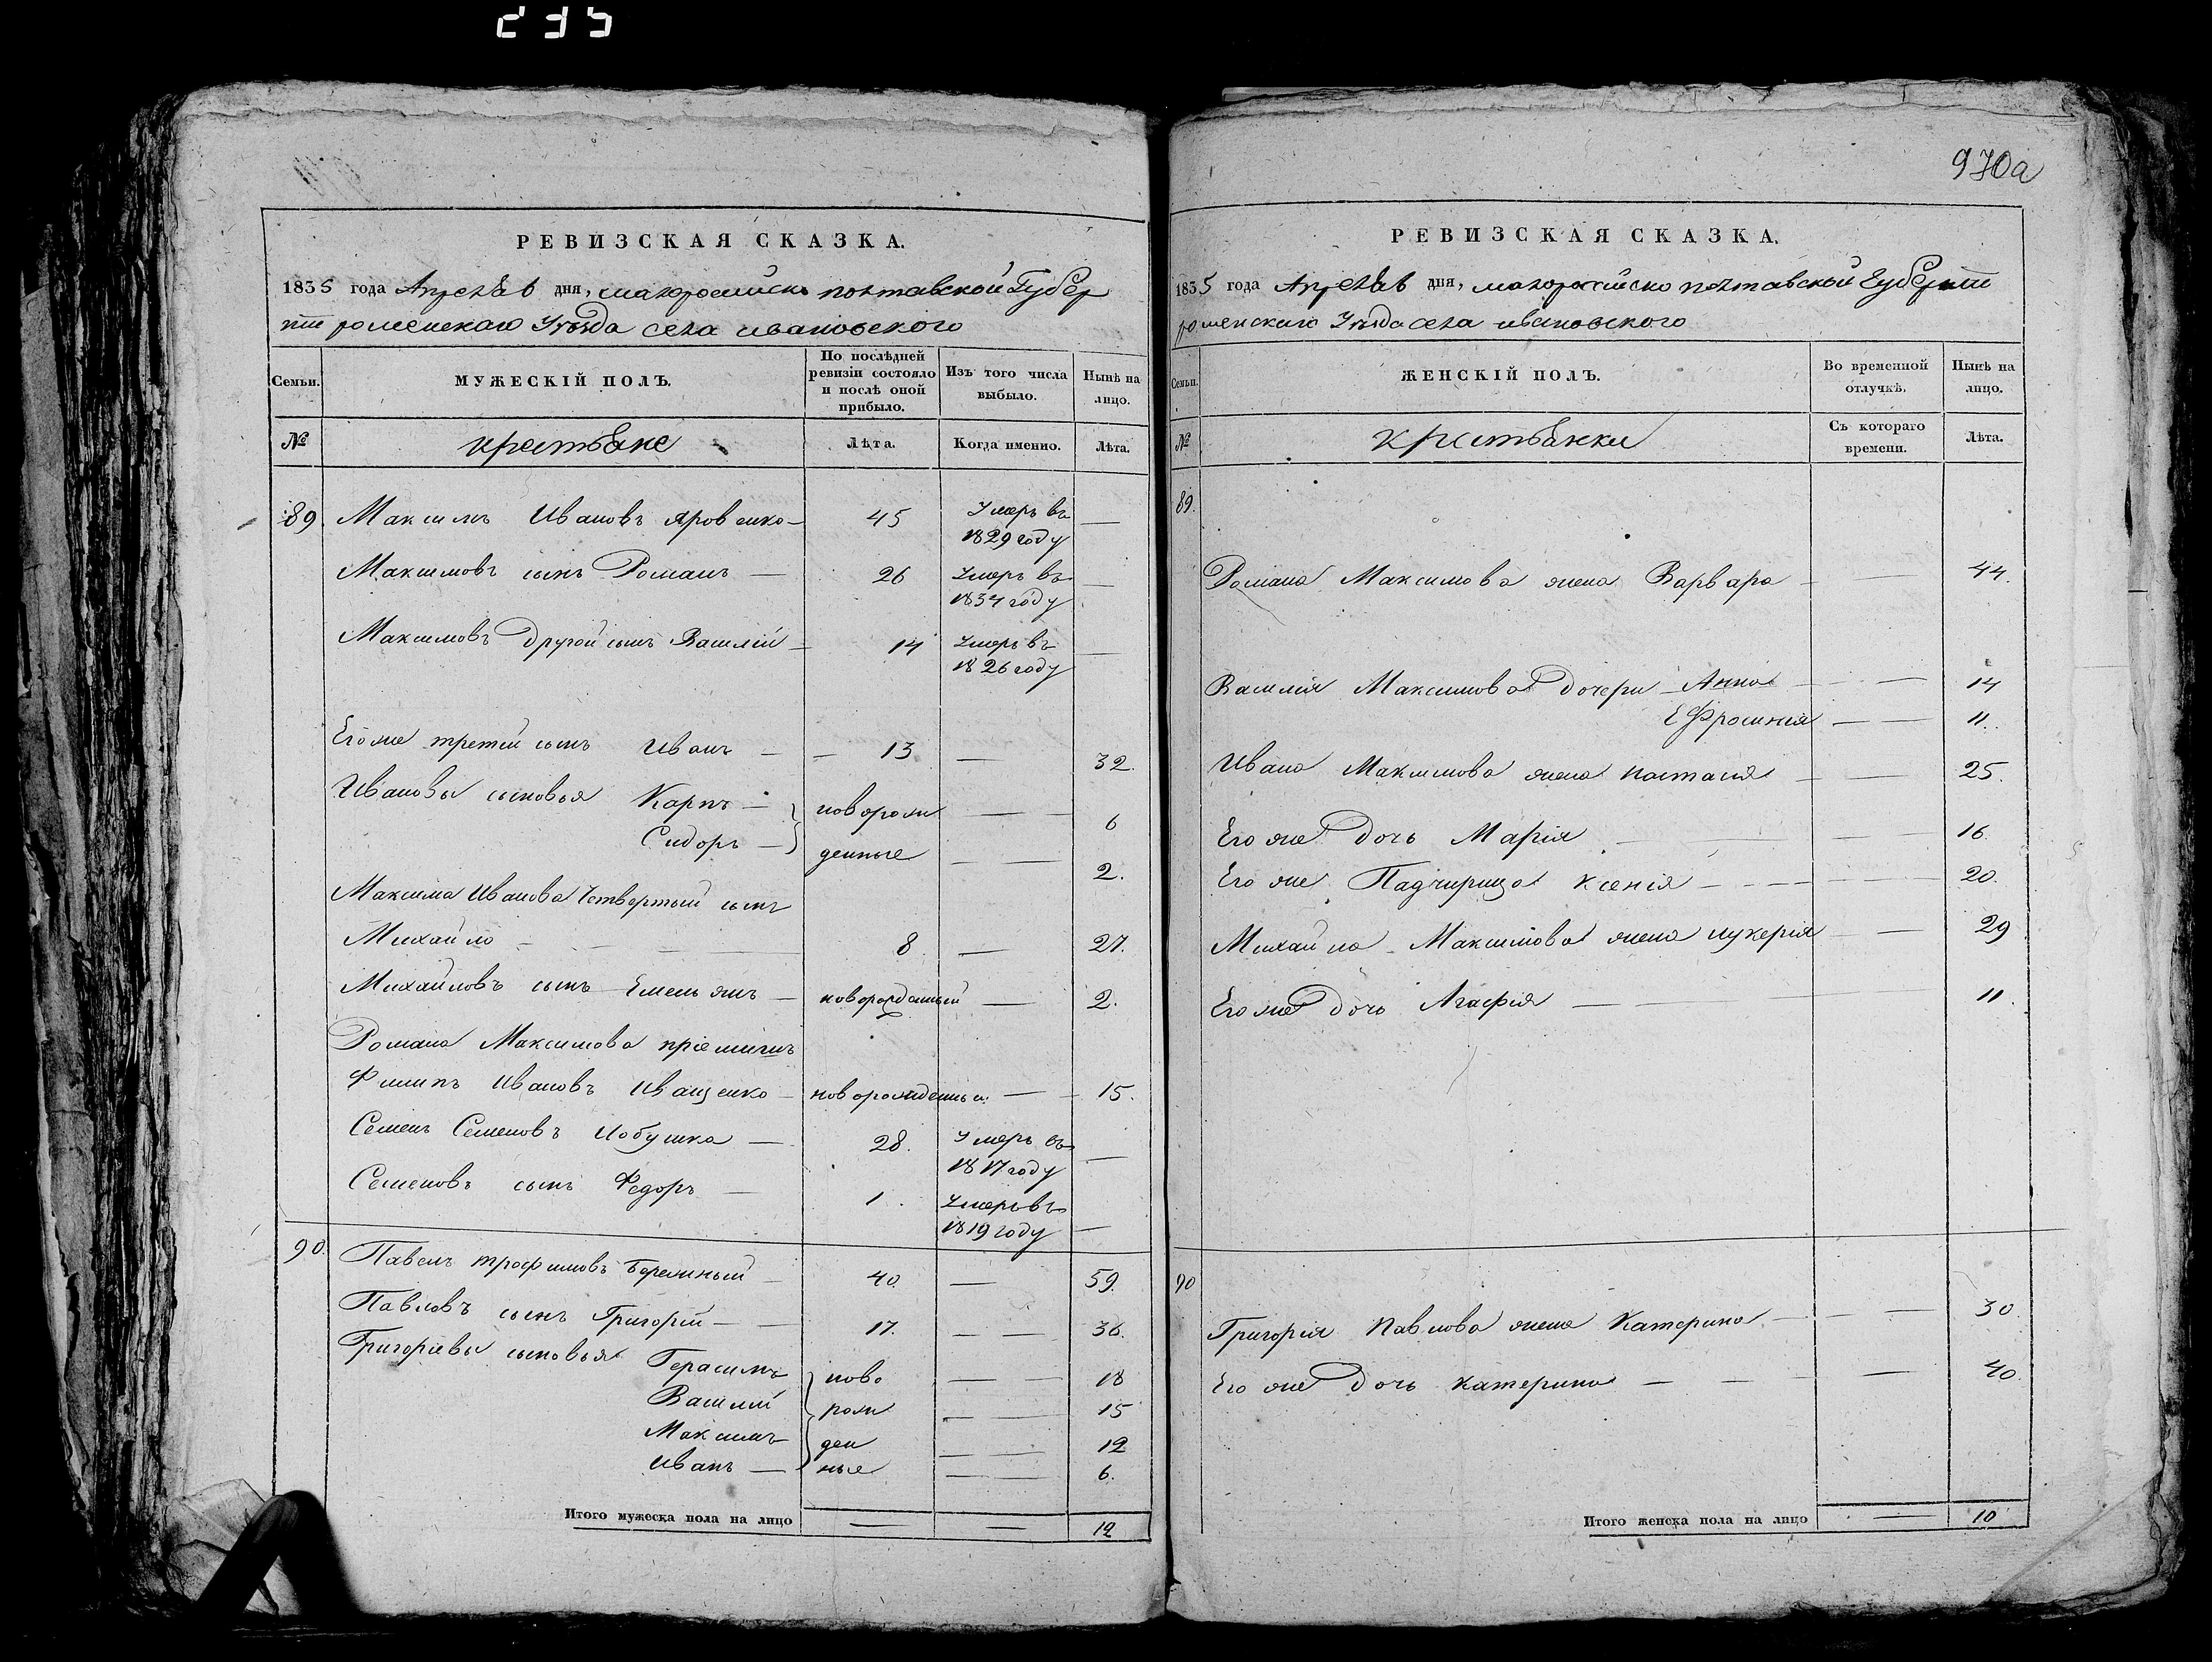 235
РЕВИЗСКАЯ СКАЗКА.
1835 года Апреля 6 дня, малоросийско полтавской Губер
нiи роменскаго Уѣзда села ивановского
Семьи.
МУЖЕСКІЙ ПОЛЪ.
По послѣдней ревизіи состояло и послѣ оной прибыло.
Изъ того числа выбыло.
Нынѣ на лицо.
№
крестьяне
Лѣта.
Когда именно.
Лѣта.
89. Максимъ Ивановъ яровенко — 45 Умеръ въ 1829 году —
Максимовъ сынъ Романъ — 26 Умеръ въ 1834 году —
Максимовъ другой сынъ Василiй — 14 Умеръ въ 1826 году —
Его же третiй сынъ Иванъ — 13 — 32.
Ивановы сыновья Карпъ — новорож — 6
Сидоръ — денные — 2.
Максима Иванова Четвертый сынъ
Михайло — 8 — 27.
Михайловъ сынъ Емельянъ — новорожденный — 2.
Романа Максимова прiемышъ
Филипъ Ивановъ Иващенко — новорожденный — 15.
Семенъ Семеновъ — 28. Умеръ въ 1817 году —
Семеновъ сынъ Федоръ — 1. Умеръ въ 1819 году —
90. Павелъ трофимовъ — 40 — 59.
Павловъ сынъ Григорiй — 17. — 36.
Григорiевы сыновья Герасимъ ново — 18
Василiй рож — 15
Максимъ ден — 12
Иванъ — ные — 6.
Итого мужеска пола на лицо — — 12
970а
РЕВИЗСКАЯ СКАЗКА.
1835 года Апреля 6 дня, малоросийско полтавской Губернiи
роменскаго Уѣзда села ивановского
Семьи.
ЖЕНСКІЙ ПОЛЪ.
Во временной отлучкѣ.
Нынѣ на лицо.
№
крестьянки
Съ котораго времени.
Лѣта.
89.
Романа Максимова жена Варвара — 44.
Василия Максимова дочери Анна — 14
Ефросиния — 11.
Ивана Максимова жена настасия — 25.
Его же дочь Марiя — 16.
Его же Падчирица Ксенiя — 20.
Михайла Максимова жена лукерия — 29
Его же дочь Агафiя — 11.
90
Григорiя Павлова жена Катерина — 30.
Его же дочь катерина — 40.
Итого женска пола на лицо — 10